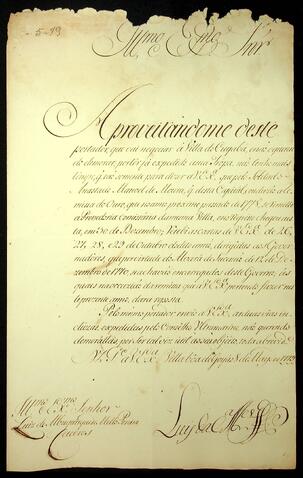 - 5 - 13
Illmo. e Exmo. Snr.
Aproveitandome deste
portador, que vai negociar à Villa do Cuyabá, e
de demorar por ter já expedido a sua Tropa, não tenho mais
tempo, q. o só somente para dizer a V. Ex.ª, que pelo Soldado
Anastacio Manoel de Moura, q. desta Capital, conduzio a
mesma de Ouro, que no anno proximo passado de 1778, se remetteo
a Provedoria Comissaria da mesma Villa, em o regresso chegou a
esta, em 30 de Dezembro; Recebi as cartas de V. Ex.ª de 26,
27, 28, e 29 de Outubro do dito anno, dirigidas aos Gover-
nadores, q. em virtude do Alvará de Sucessão de 12 de De-
zembro de 1770, se achavão encarregados deste Governo; ás
quaes na occazião da remessa que V. Ex.ª pertende fazer
no prezente anno, darei reposta.
Pelo mesmo portador envio a V. Ex.ª, as duas vias in-
cluzas, expedidas pelo Conselho Ultramarino, não querendo
demorallas, por ser talvez util ao seu objecto, esta a brevid.e
D.s G.e a V. Ex.ª Villa Boa de Goyaz 8 de Março de 1779
Illmo. e Exmo. Senhor
Luiz de Albuquerque de Mello Pereira
e Caceres
Luiz da